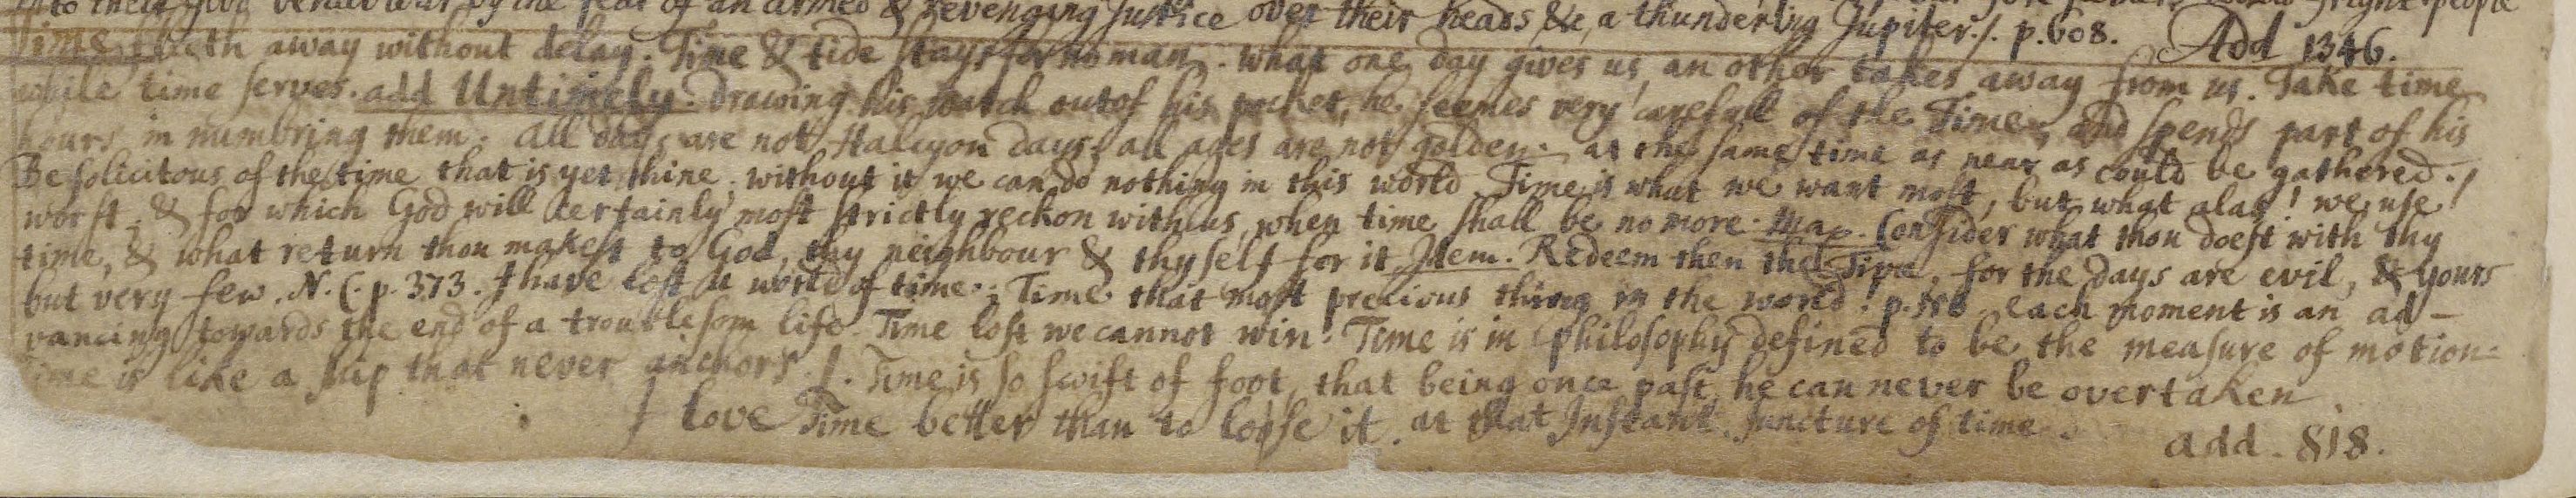 into their good behaviour by the fear of an armed & revenging Justice over their heads &c, a thundering Jupiter./. p.608. Add 1346.
Time fleeth away without delay. Time & tide stays for no man. what one day gives us, an other takes away from us. Take time
while time serves. add Untimely. Drawing his watch out of his pocket, he seemes very carefull of the Time, and spends part of his
hours in numbring them. All days are not Halcyon days, all ages are not golden. at the same time as near as could be gathered./
Be solicitous of the time that is yet thine. without it we can do nothing in this world. Time is what we want most, but what alas! we use
worst, & for which God will certainly most strictly reckon with us, when time shall be no more. Consider what thou doest with thy
time, & what return thou makest to God, thy neighbour & thyself for it Idem. Redeem then the Time, for the days are evil, & yours
but very few. N.C. p. 373. I have lost a world of time. Time that most precious thing in the world! each moment is an ad-
vancing towards the end of a troublesom life. Time lost we cannot win. Time is in Philosophy defined to be the measure of motion.
Time is like a ship that never anchors. /. Time is so swift of foot, that being once past, he can never be overtaken.
I love Time better than to loose it. at that Instant. juncture of time. add. 818.